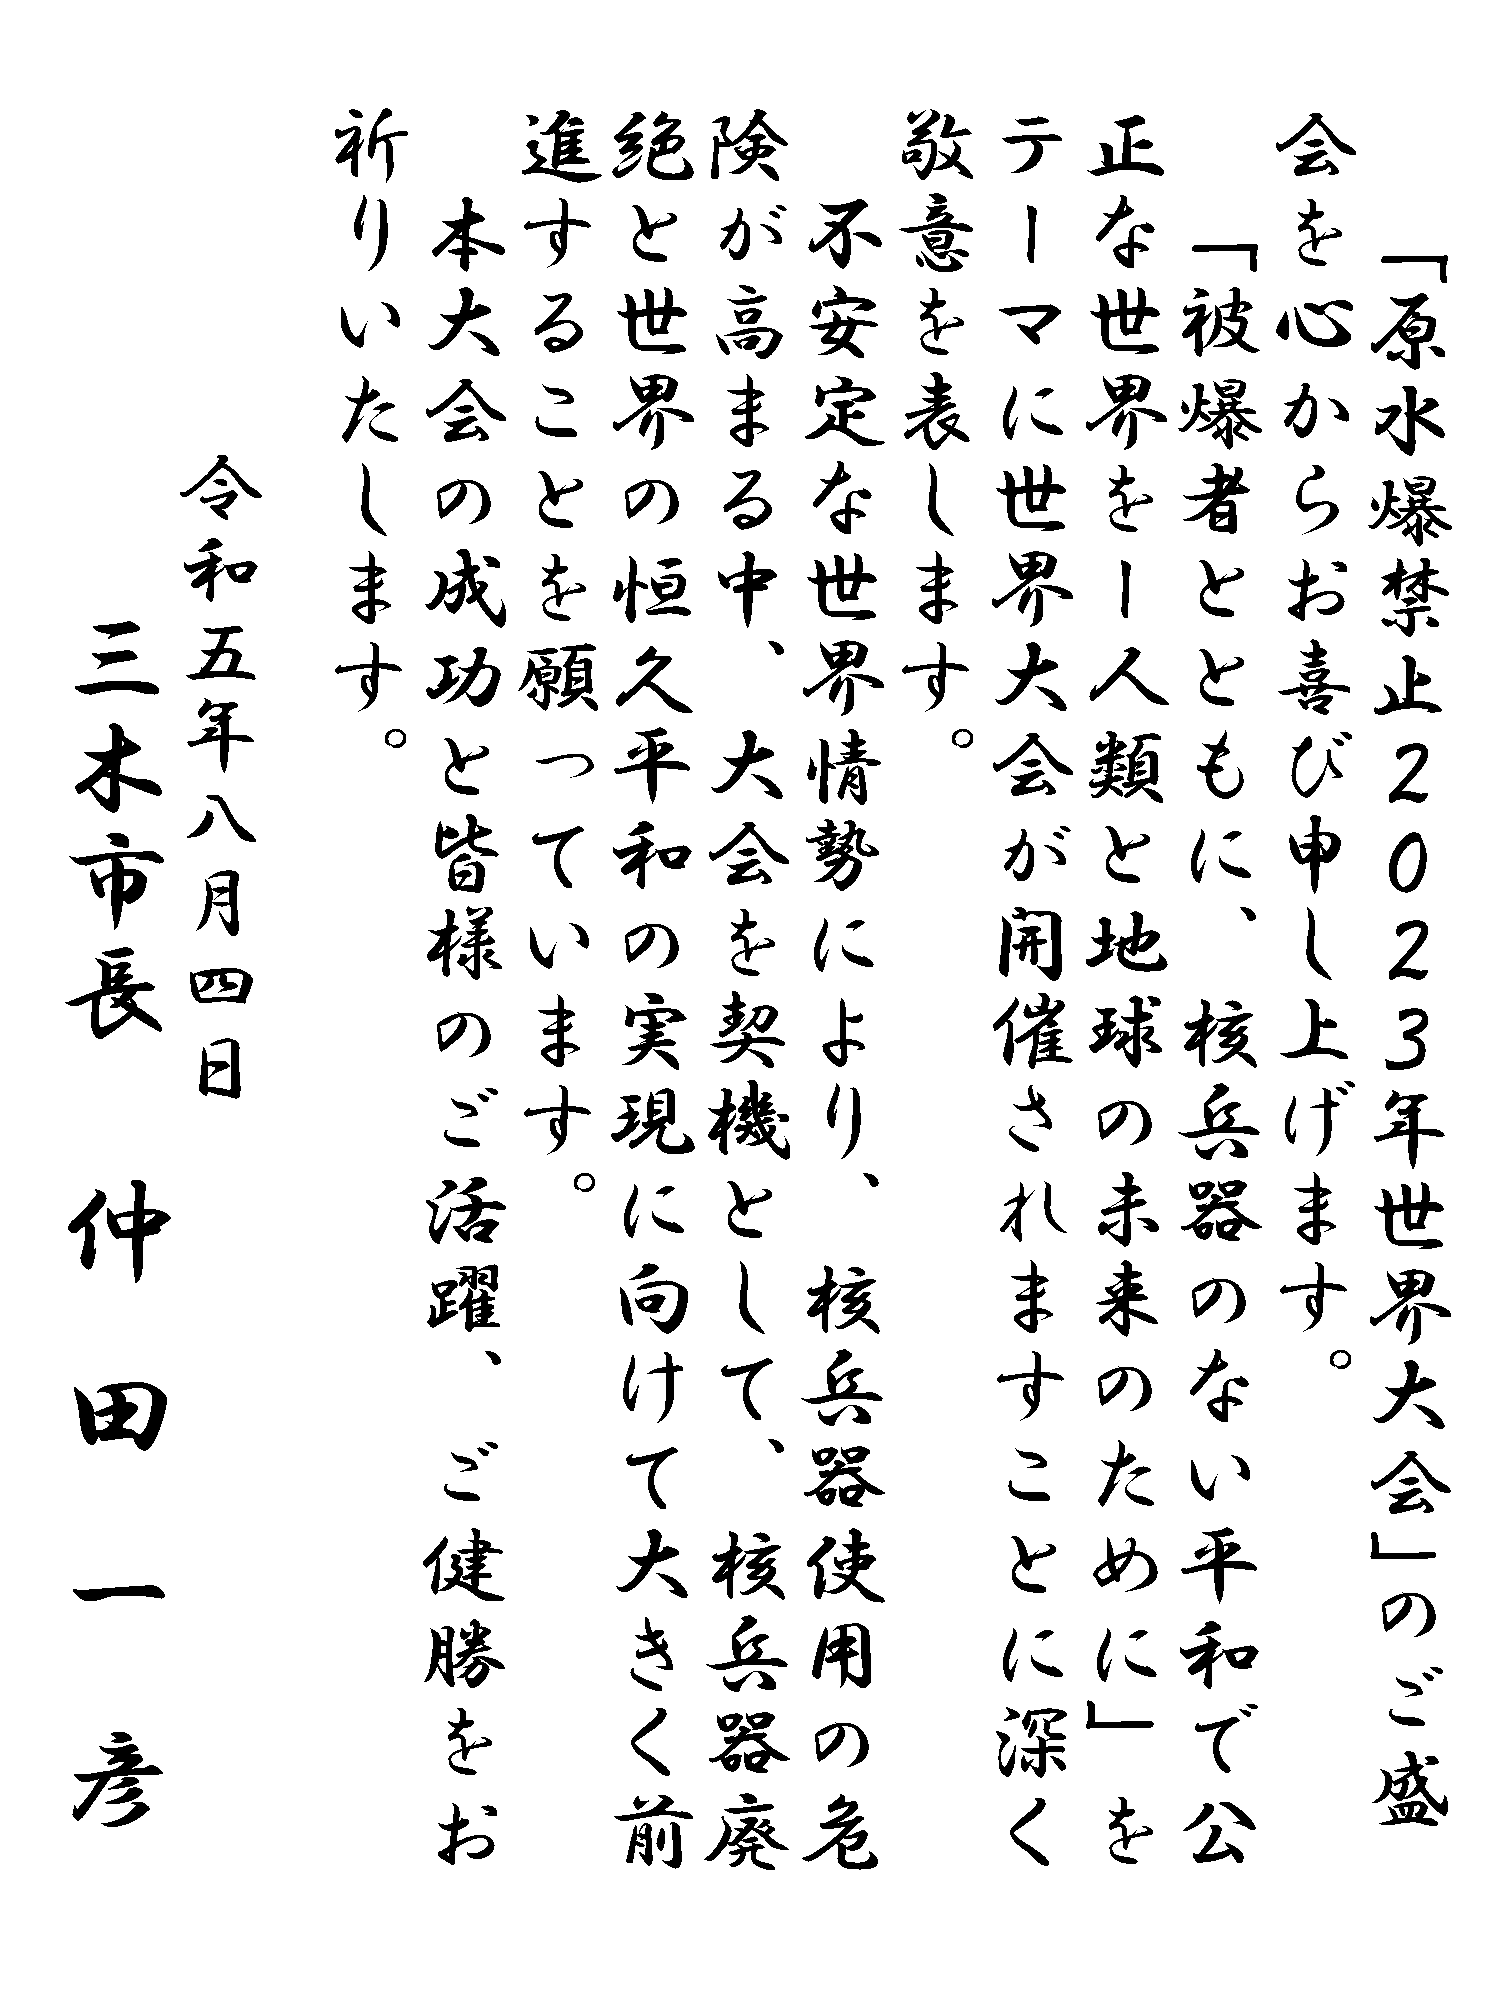 「原水爆禁止2023年世界大会」のご盛
会を心からお喜び申し上げます。
「被爆者とともに、核兵器のない平和で公
正な世界を―人類と地球の未来のために」を
テーマに世界大会が開催されますことに深く
敬意を表します。
不安定な世界情勢により、核兵器使用の危
険が高まる中、大会を契機として、核兵器廃
絶と世界の恒久平和の実現に向けて大きく前
進することを願っています。
本大会の成功と皆様のご活躍、ご健勝をお
祈りいたします。
令和五年八月四日
三木市長 仲田一彦